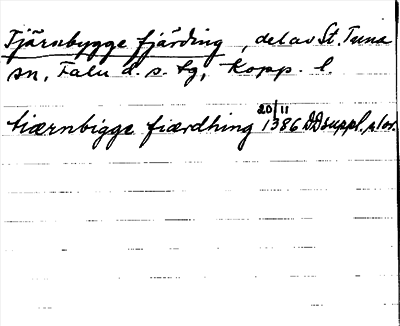 Tjärnbygge fjärding, del av St. Tuna
sn, Falu d. s. tg, Kopp. l.
tiærnbigge fiærdhing 20/11 1386 DD suppl.